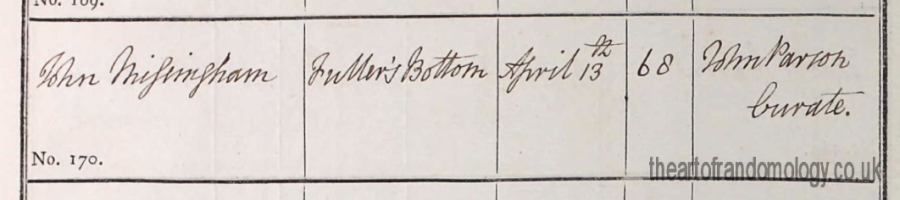 No. 169.
John Missingham Fuller's Bottom April 13th 68 John Parson
Curate.
No. 170.
theartofrandomology.co.uk